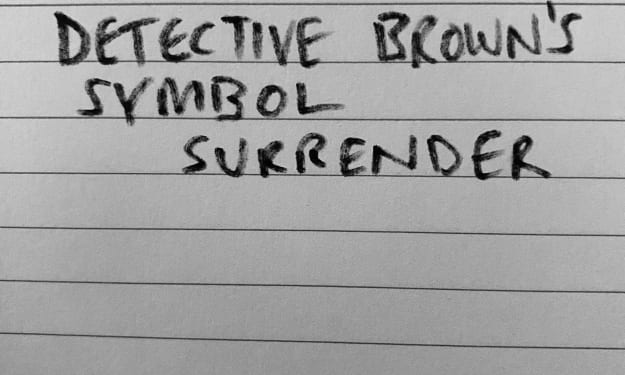 DETECTIVE BROWN'S
SYMBOL
SURRENDER